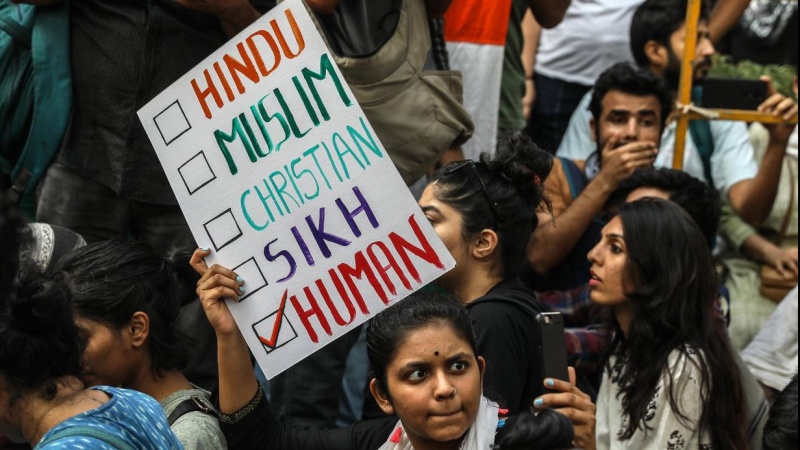 HINDU
MUSLIM
CHRISTIAN
SIKH
HUMAN